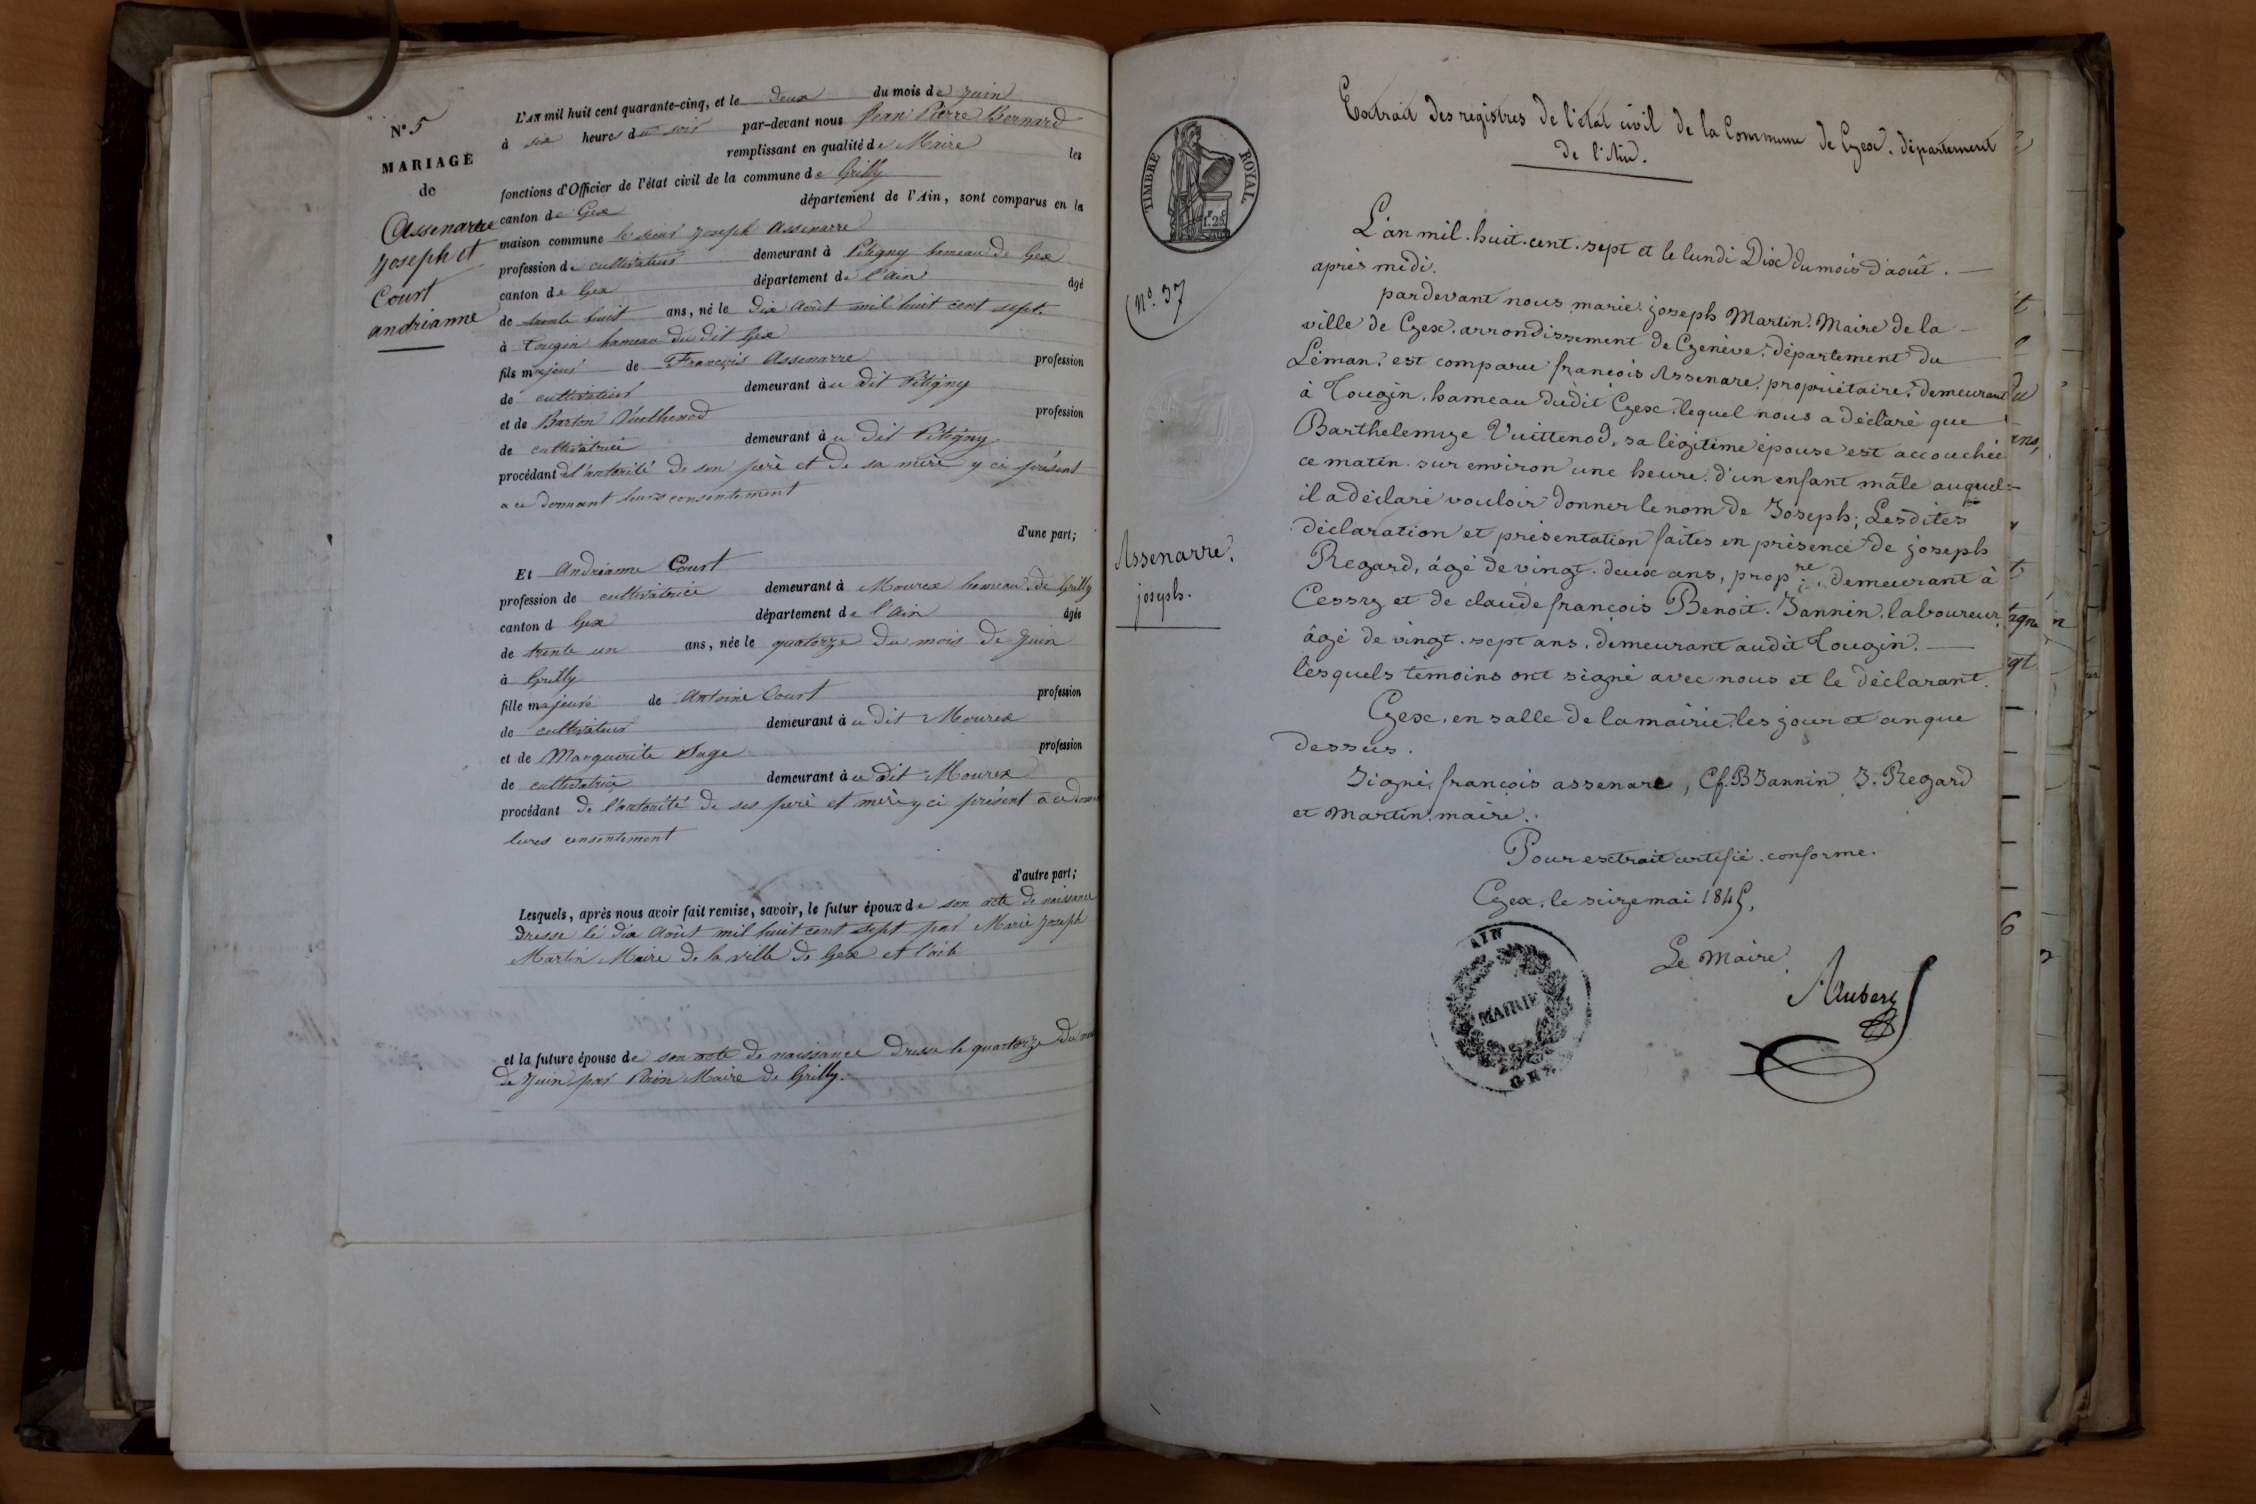 N° 5
MARIAGE
de
Assenarre
joseph et
Court
andrianne
L'AN mil huit cent quarante-cinq, et le deux du mois de juin
à six heures du soir par-devant nous Jean Pierre Bernard
remplissant en qualité de Maire les
fonctions d'Officier de l'état civil de la commune de Grilly
canton de Gex département de l'Ain, sont comparus en la
maison commune le sieur joseph Assenarre
profession de cultivateur demeurant à Pitigny hameau de Gex
canton de Gex département de l'ain âgé
de trente huit ans, né le dix Août mil huit cent sept.
à Tougin hameau du dit Gex
fils majeur de François Assenarre profession
de cultivateur demeurant au dit Pitigny
et de Barton Vuethenod profession
de cultivatrice demeurant au dit Pitigny
procédant de l'autorité de son père et de sa mère y ci présent
a ce donnant leurs consentement
d'une part;
Et Andrianne Court
profession de cultivatrice demeurant à Mourex hameau de Grilly
canton d Gex département de l'ain âgée
de trente un ans, née le quatorze du mois de juin
à Grilly
fille majeure de Antoine Court profession
de cultivateur demeurant au dit Mourex
et de Marguerite Sage profession
de cultivatrice demeurant au dit Mourex
procédant de l'autorité de ses père et mère y ci présent a ce donn
leures consentement
d'autre part;
Lesquels, après nous avoir fait remise, savoir, le futur époux de son acte de naissance
dresse lé dix Août mil huit cent sept par Marie Joseph
Martin Maire de la ville de Gex et l'ain
et la future épouse de son acte de naissance dresse le quatorze du
de juin par Maire de Grilly.
TIMBRE ROYAL
1.F 25C
N°. 37
Assenarre.
joseph.
Extrait des registres de l'état civil de la Commune de Gex. département
de l'Ain.
L'an mil.huit.cent.sept et le lundi Dix du mois d'août.
après midi.
pardevant nous marie.joseph Martin.Maire de la
ville de Gex.arrondissement de Genève.département du
Léman. est comparu françois Assenare.propriétaire.demeurant
à Tougin.hameau dudit Gex.lequel nous a déclaré que
Barthelemye Vuittenod, sa légitime épouse est accouchée
ce matin sur environ une heure.d'un enfant mâle auquel
il a déclaré vouloir donner le nom de Joseph; Lesdites
déclaration et présentation faites en présence de joseph
Regard, âgé de vingt.deux ans, prop.re, demeurant à
Cessy et de claude françois Benoit.Jannin.laboureur
âgé de vingt.sept ans.demeurant audit Tougin.
lesquels témoins ont signé avec nous et le déclarant.
Gex.en salle de la mairie.les jour et an que
dessus.
Signé, françois assenare, Cf.B Jannin J. Regard
et Martin.maire.
Pour extrait certifié.conforme.
Gex.le seize mai 1845,
Le Maire
AIN
MAIRIE
GEX